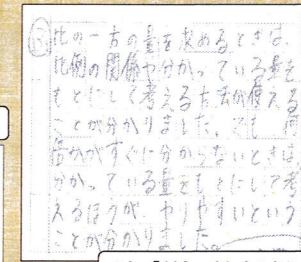 比の一方の量を求めるときは、
比例の関係や分かっている量を
もとにして考える方法が使える
ことが分かりました。でも、何
倍かがすぐに分からないときは
分かっている量をもとにして考
えるほうが、やりやすいという
ことが分かりました。